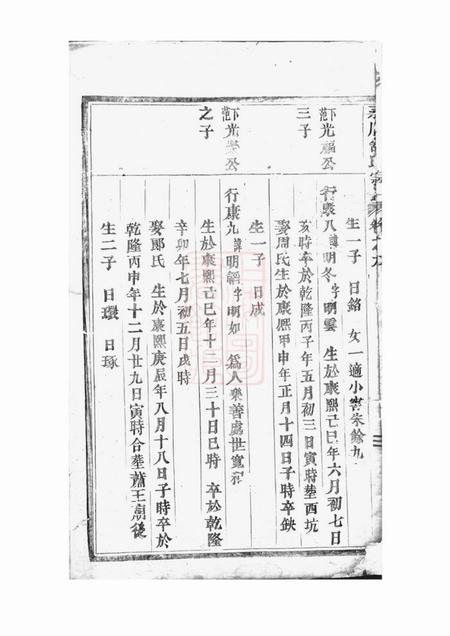 生一子 曰銘 女一適小 朱餘九
下范光福公
三子
行康八諱明冬字明雲 生於康熙己巳年六月初七日
亥時卒於乾隆丙子年五月初三日寅時塟西坑
娶周氏生於康熙甲申年正月十四日子時卒缺
生一子 曰成
下范光 公
之子
行康九諱明 字明如 為人樂善處世寬和
生於康熙己巳年十二月三十日巳時 卒於乾隆
辛卯年七月初五日戌時
娶鄭氏 生於康熙庚辰年八月十八日子時卒於
乾隆丙申年十二月廿九日寅時合塟蕭王廟後
生二子 曰環 曰琢